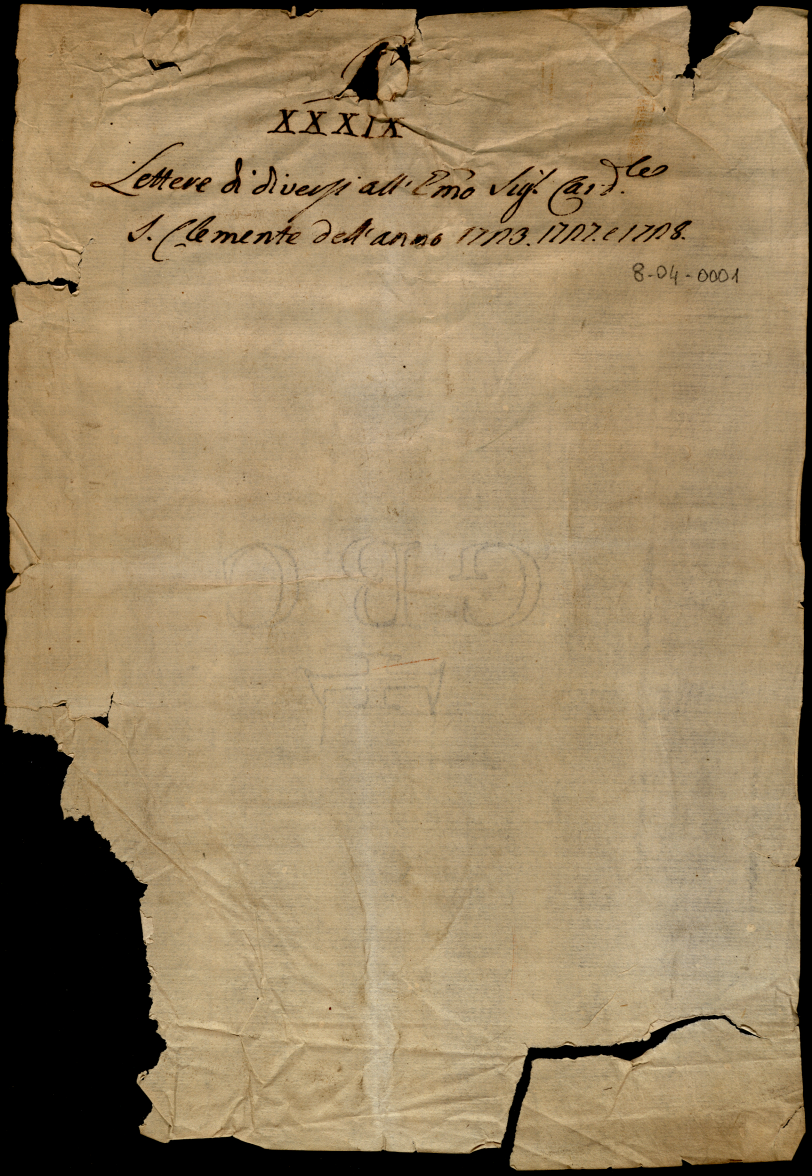 XXXIX
Lettere di diversi all' Emo Sigr. Card.le
S. Clemente dell' anno 1703. 1707. e 1708.
8-04-0001